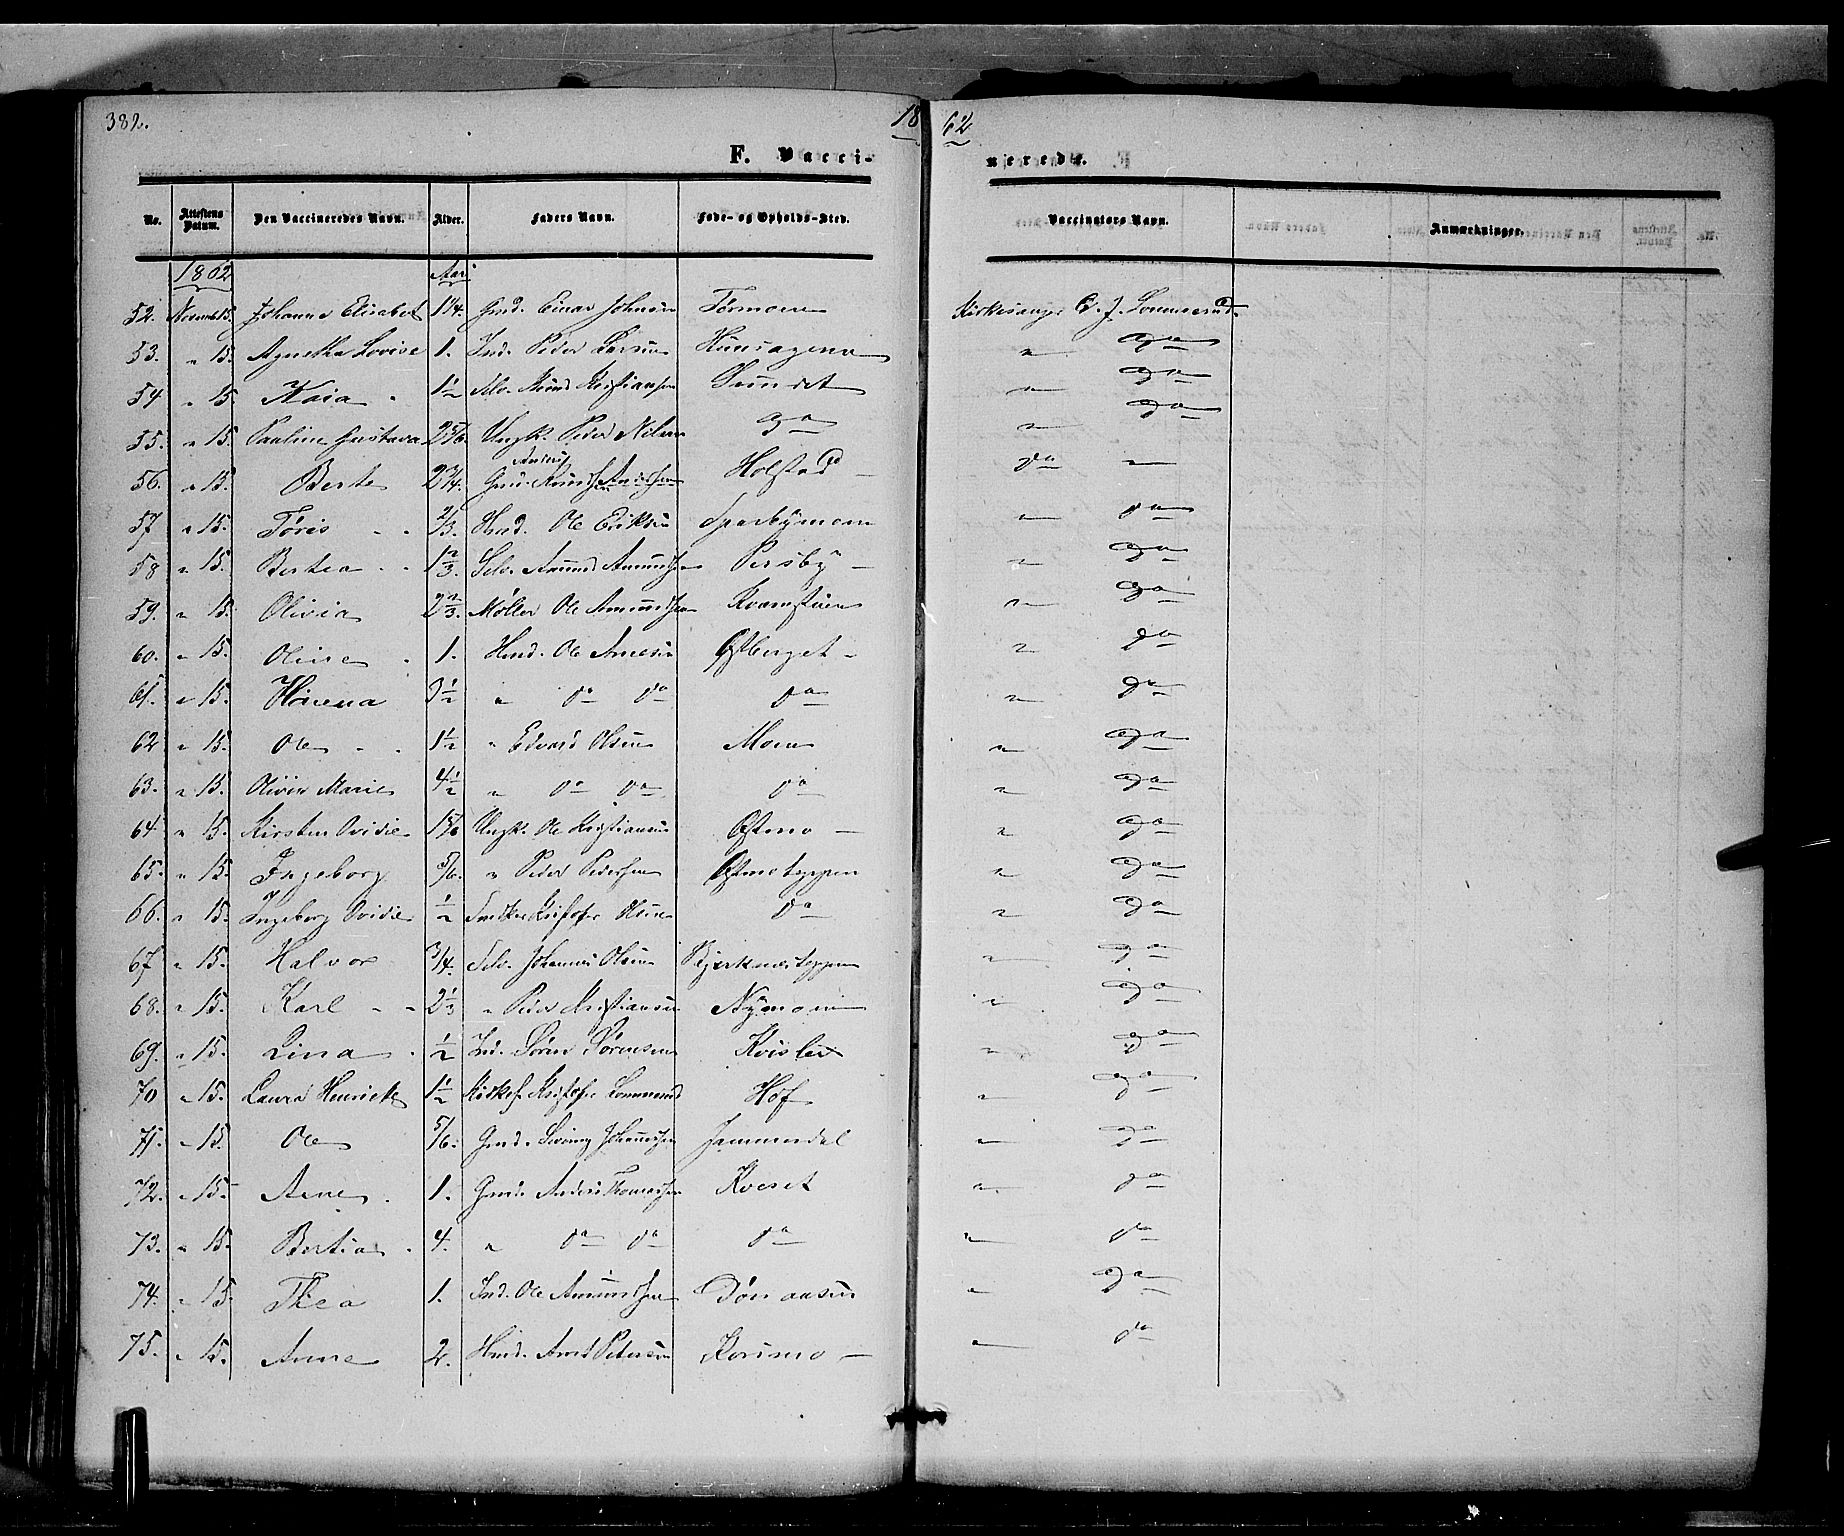 382.
18 62
F. Vacci-
nerede.
No. Attestens Datum. Den Vaccineredes Navn. Alder. Faders Navn. Føde- og Opholds-Sted. Vaccinators Navn. Anmærkninger.
1862 Aar
52. Novemb 15. Johanne Elisabet 1 1/4. Gmd. Einar Johnsen Tørmoen Kirkesanger
53. " 15. Agnethe Lovise 1. Ind. Peder Larsen " do
54. " 15. Kaia 1 1/2 Selv. Kristiansen Sundet " do
55. " 15. Pauline Gustava 2 5/6. Ungk. Peder Nilsen do " do
56. " 15. Berte 2 3/4. Holstad do "
57. " 15. Tøris 2/3. Hmd. Ole Eriksen Sparbymoen " do
58 " 15. Bertea 1 2/3. Selv. Amund Amundsen Persby " do
59. " 15. Olivia 2 2/3. Møller Ole Amundsen " do
60. " 15. Oline 1. Hmd. Ole Arnesen Østberget " do
61. " 15. 3 1/2 " do do do " do
62 " 15. Ole 1 1/2 " Edvard Olsen Moen " do
63. " 15. Marie 4 1/2 " do do do " do
64. " 15. Kirsten Ovidie 1 5/6 Ungk. Ole Kristiansen Østmo " do
65. " 15. Ingeborg 5/6. " Peder Pedersen " do
66. " 15. Ingeborg Ovidie 1/2 Olsen do " do
67. " 15. Halvor 3/4. Selv. Johannes Olsen " do
68. " 15. Karl 2 1/3 " Peder Kristiansen Nymoen " do
69. " 15. Lina 1/2 Ind. Søren Sørensen Kvisler " do
70 " 15. Laura Henriette 1 1/2 Hof " do
71. " 15. Ole 5/6. Gmd. Johannesen Jammerdal " do
72. " 15. Arne 1. Gmd. Anders Thomassen Kveset " do
73. " 15. Bertia 4. " do do do " do
74. " 15. Thea 1. Ind. Ole Amundsen " do
75. " 15. Anne 2. Hmd. Petersen Korsmo " do